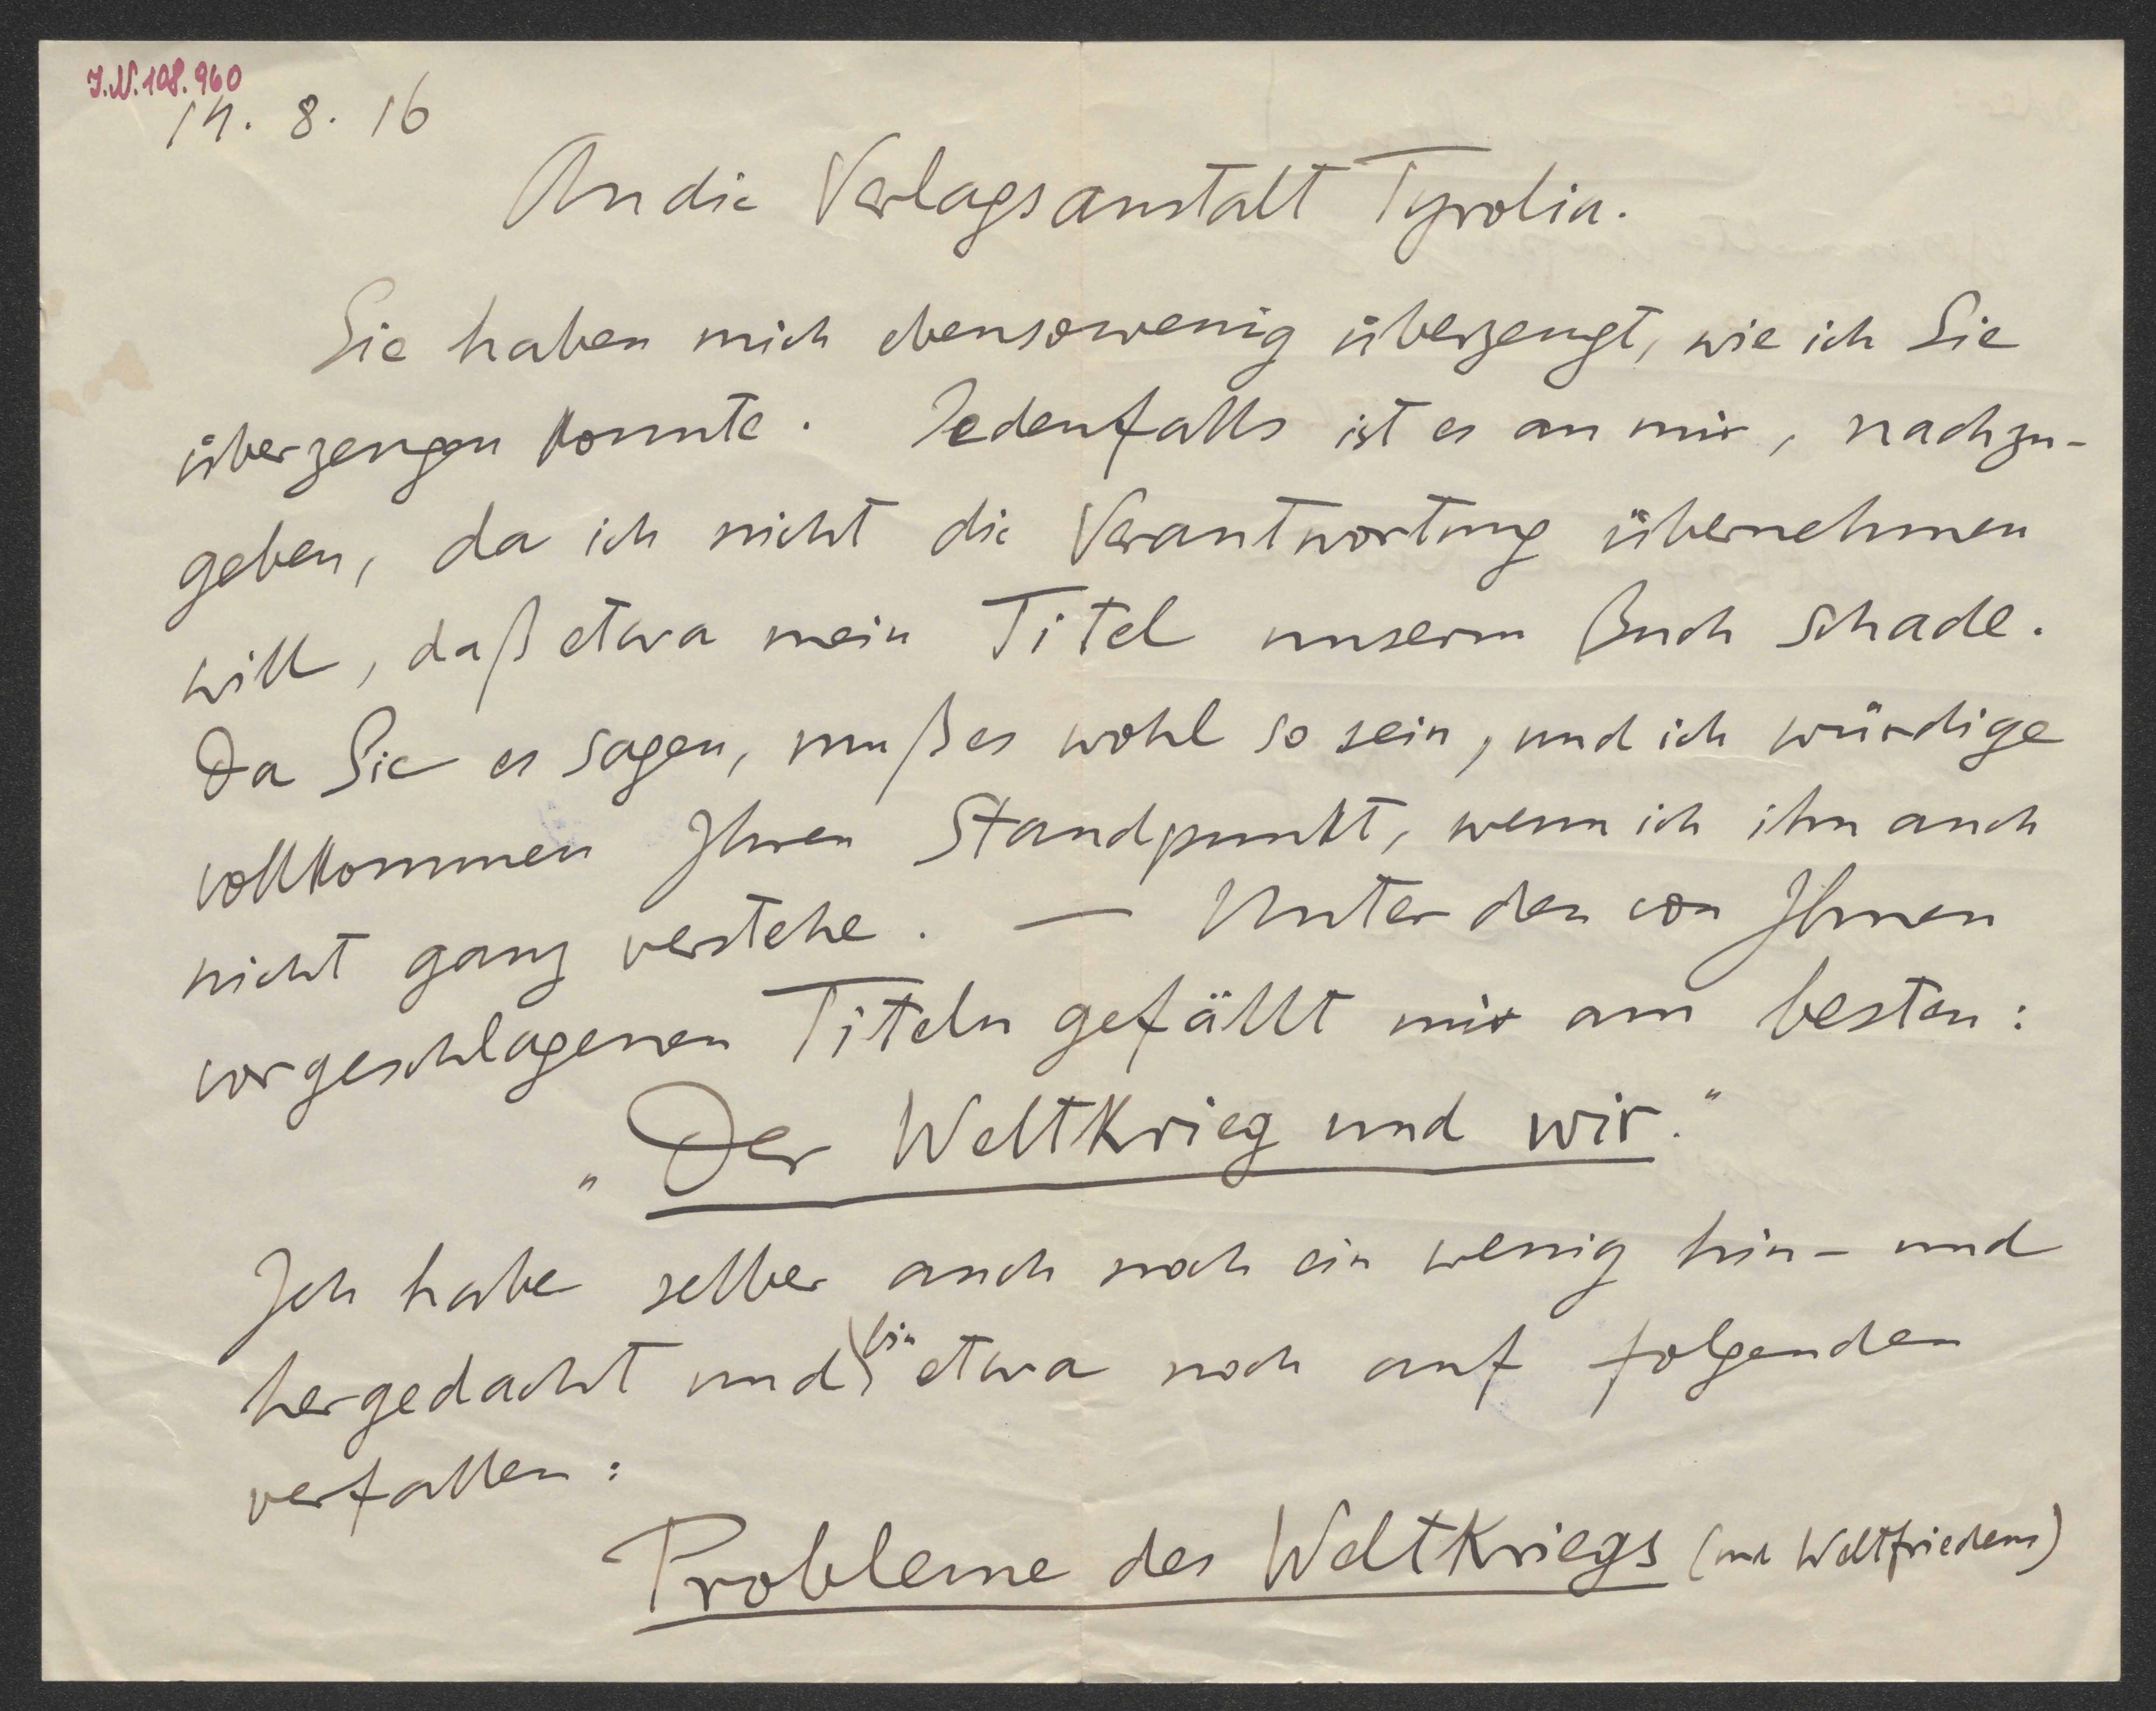 I.N. 108.960
14. 8. 16
An die Verlagsanstalt Tyrolia.
Sie haben mich ebensowenig überzeugt, wie ich Sie
überzeugen konnte. Jedenfalls ist es an mir, nachzu-
geben, da ich nicht die Verantwortung übernehmen
will, daß etwa mein Titel unserm Buch schade.
Da Sie es sagen, muß es wohl so sein, und ich würdige
vollkommen Ihren Standpunkt, wenn ich ihn auch
nicht ganz verstehe. — Unter den von Ihnen
vorgeschlagenen Titeln gefällt mir am besten:
„Der Weltkrieg und wir."
Ich habe selber auch noch ein wenig hin- und
hergedacht und bin etwa noch auf folgenden
verfallen:
Probleme des Weltkriegs (und Weltfriedens)